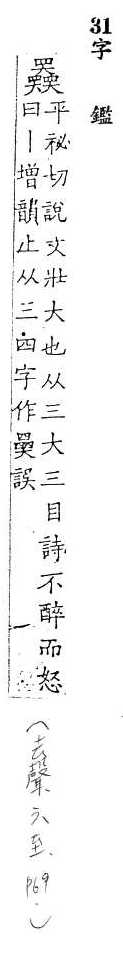 31字鑑
𡚤
平祕切說文壯大也从三大三目詩不醉而怒
曰丨增韻止从三四字作奰誤
(去聲六至、P69.)